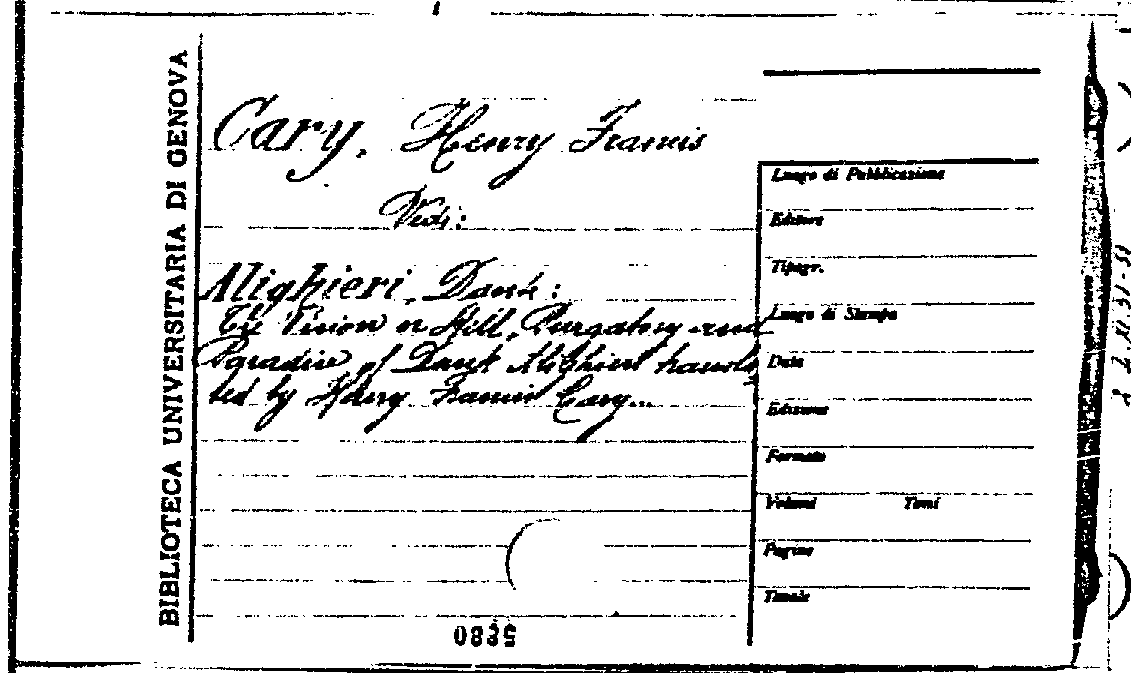 BIBLIOTECA UNIVERSITARIA DI GENOVA
Cary, Henry Francis
Vedi:
Alighieri, Dante:
The Vision or Hell, Purgatory and
Paradise of Dante Alighieri transla
ted by Henry Francis Cary...
Luogo di Pubblicazione
Editore
Tipogr.
Luogo di Stampa
Data
Edizione
Formato
Volumi Tomi
Pagine